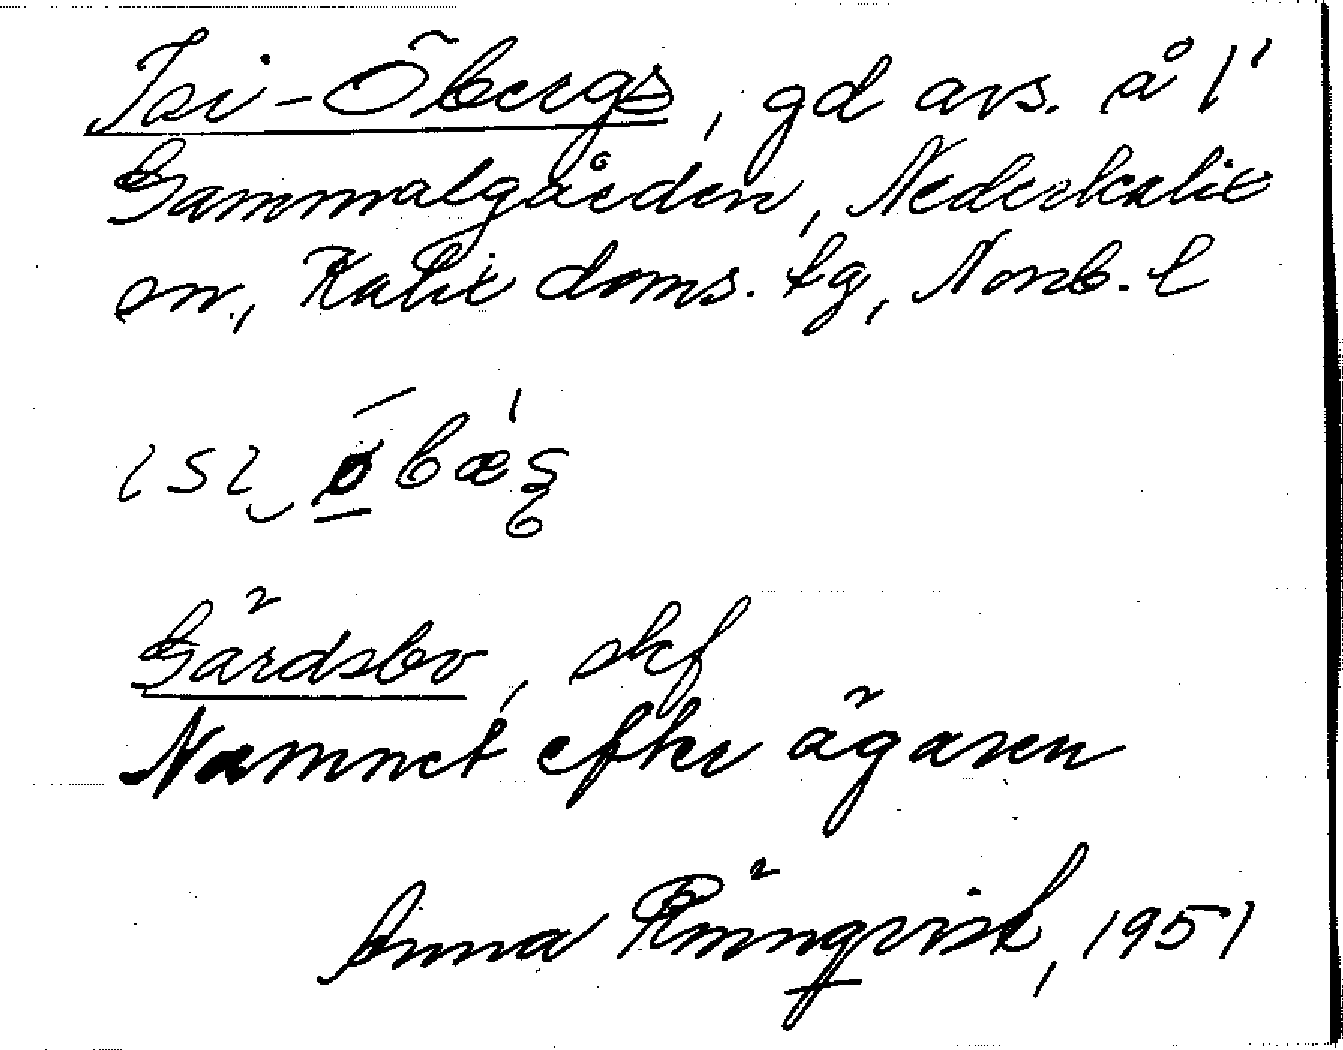 Isi-Öbergs, gd avs. å 1'
Gammalgården, Nederkalix
sn., Kalix doms. tg, Norrb. l
Gårdsbo, skf
Namnet efter ägaren
Anna Rönnqvist, 1951